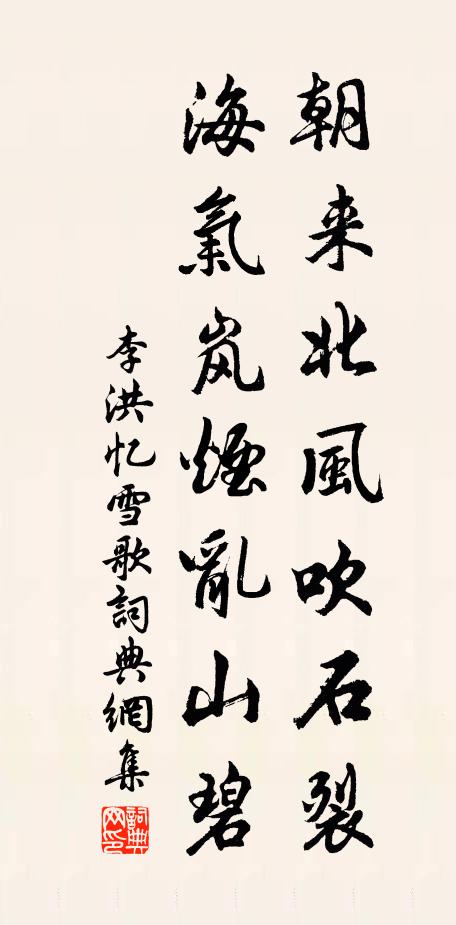 朝来北風吹石裂
海氣岚煙亂山碧
李洪忆雪歌詞典網集
詞典网印